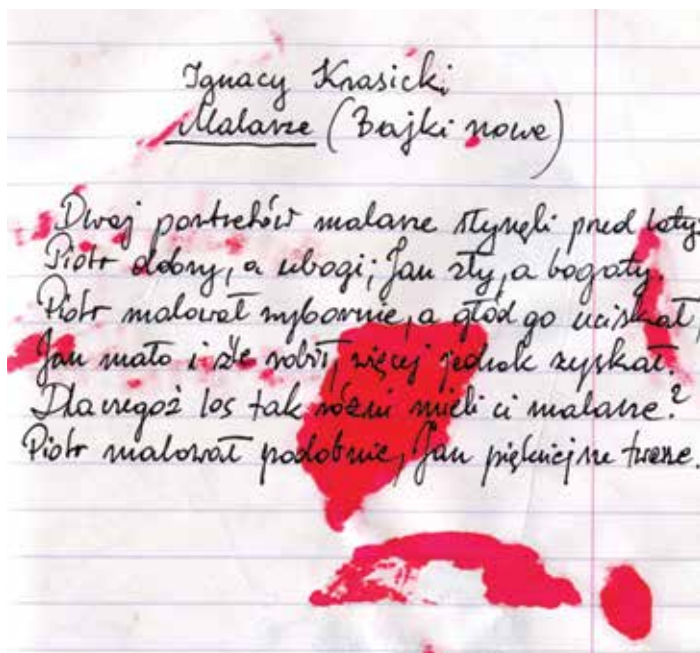 Ignacy Krasicki
Malarze (Bajki nowe)
Dwaj portretów malarze słynęli przed laty:
Piotr dobry, a ubogi; Jan zły, a bogaty.
Piotr malował wybornie, a głód go uciskał,
Jan mało i źle robił, więcej jednak zyskał.
Dlaczegoż los tak różni mieli ci malarze?
Piotr malował podobnie, Jan piękniejsze twarze.